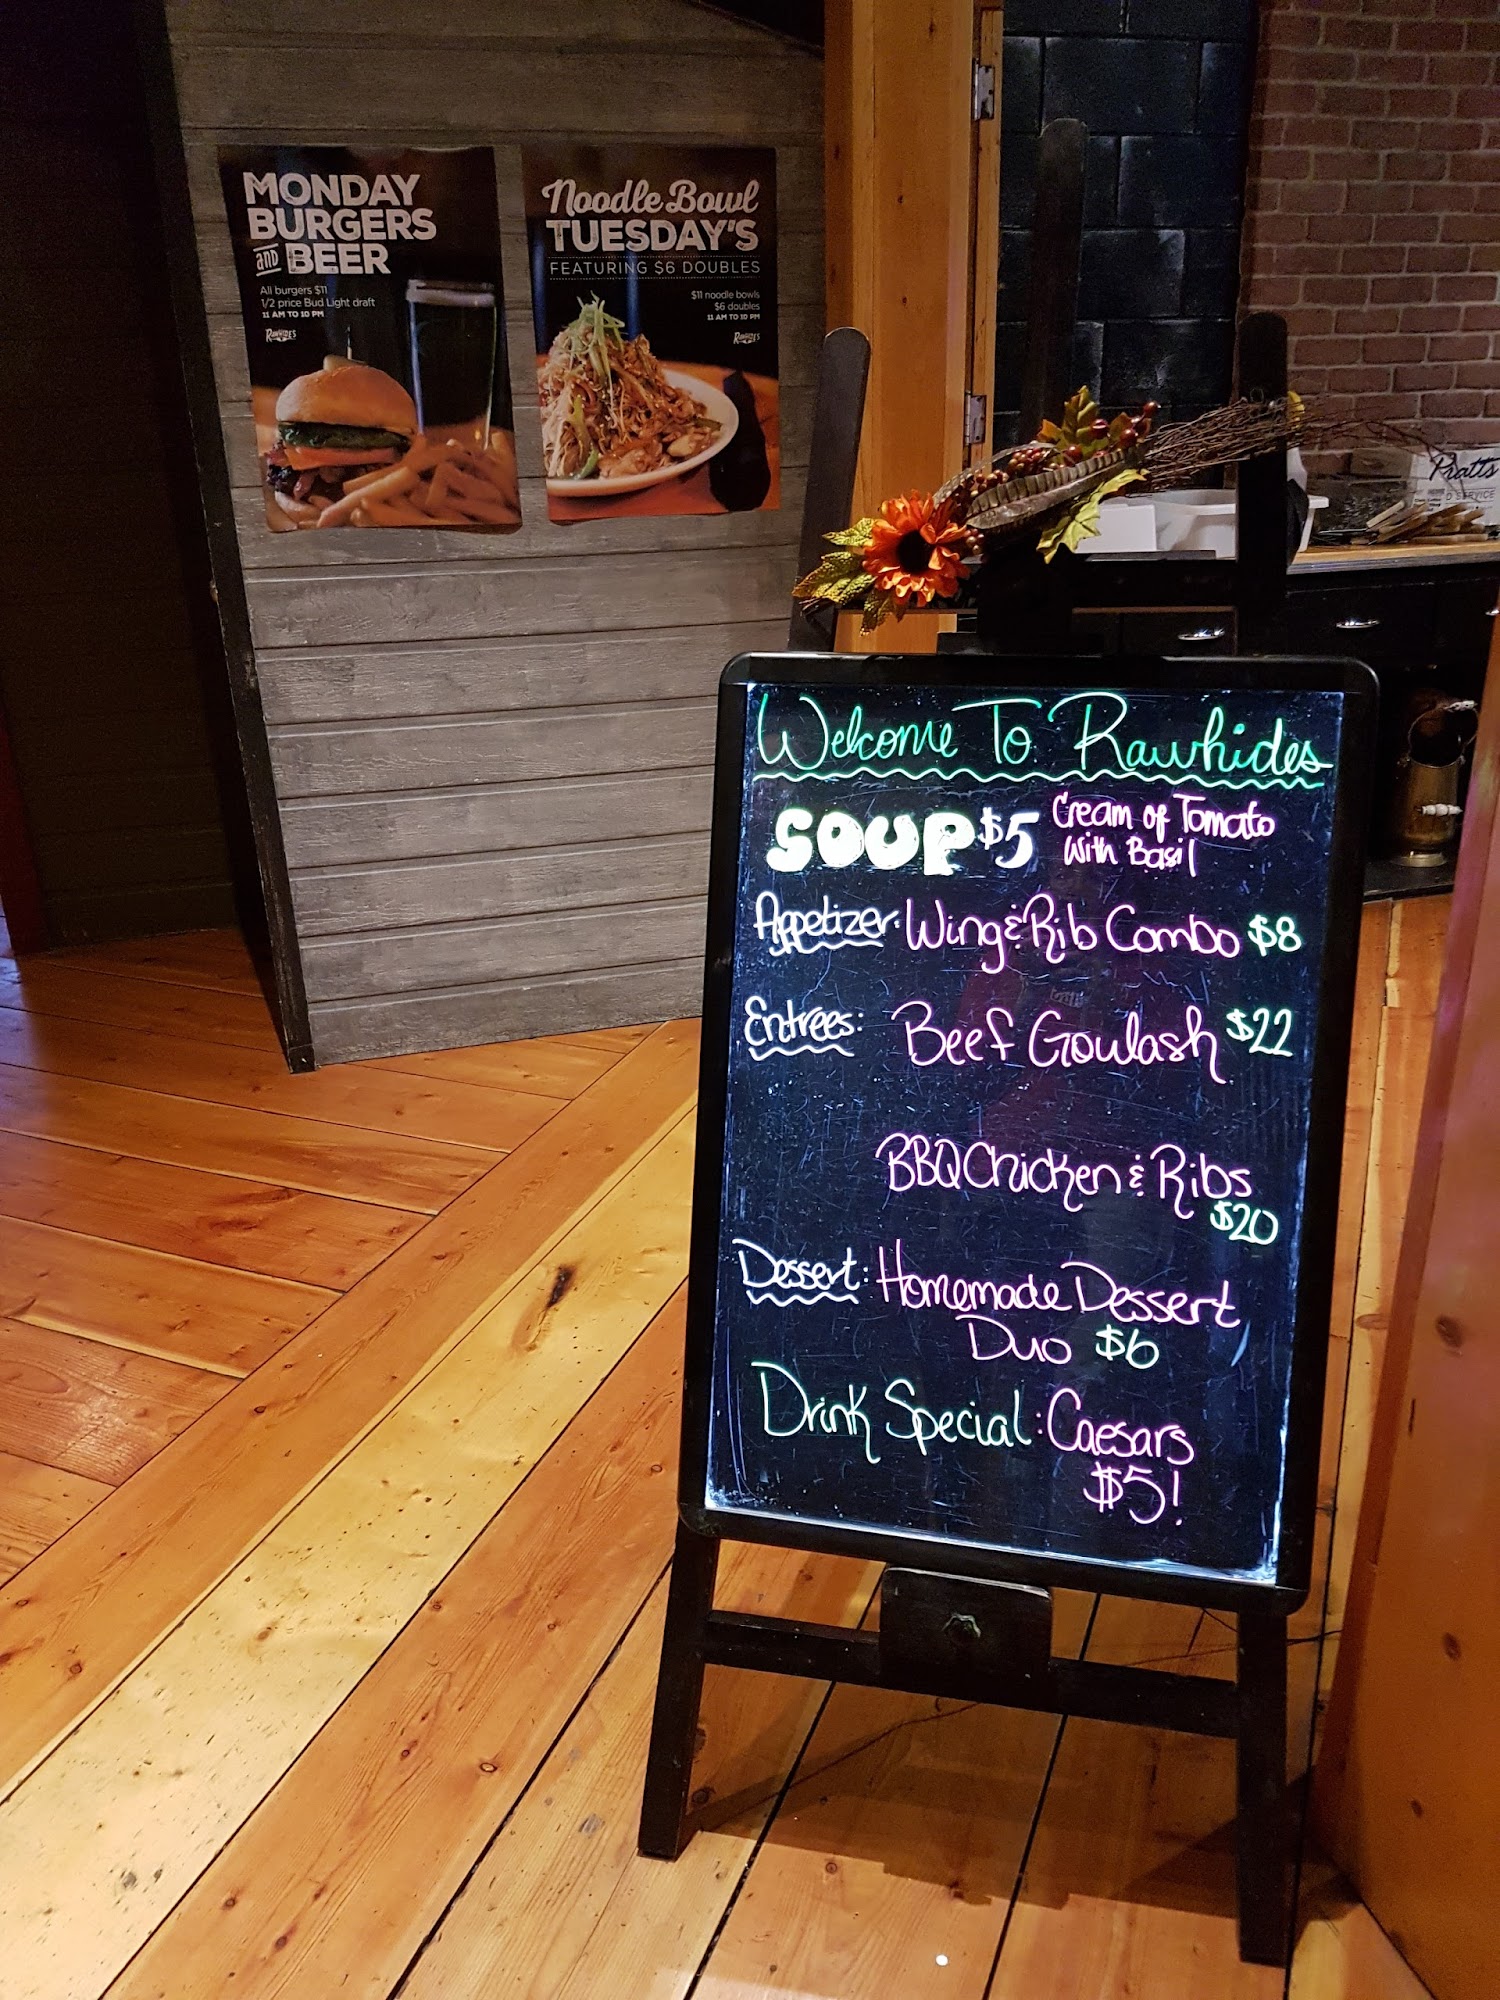 MONDAY
BURGERS
and BEER
All burgers $11
1/2 price Bud Light draft
11 AM TO 10 PM
RAWHIDES
Noodle Bowl
TUESDAY'S
FEATURING $6 DOUBLES
$11 noodle bowls
$6 doubles
11 AM TO 10 PM
RAWHIDES
Pratts
D SERVICE
Welcome To Rawhides
SOUP $5 Cream of Tomato
With Basil
Appetizer: Wing & Rib Combo $8
Entrees: Beef Goulash $22
BBQ Chicken & Ribs
$20
Dessert: Homemade Dessert
Duo $6
Drink Special: Caesars
$5!